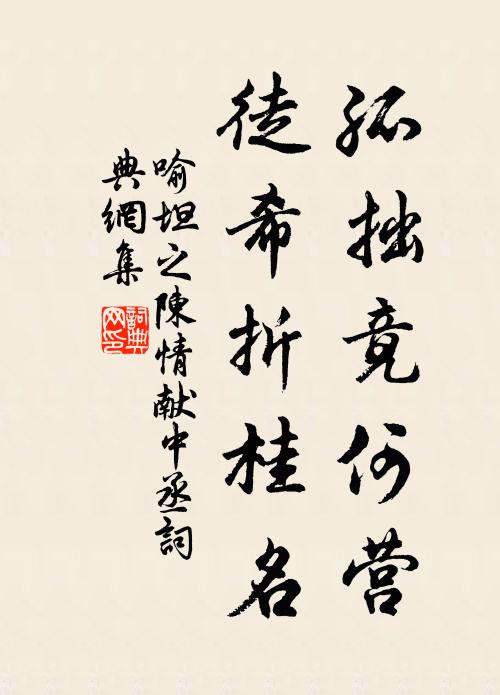 孤拙竟何营
徒希折桂名
喻坦之陳情献中丞詞
典網集
詞典网印